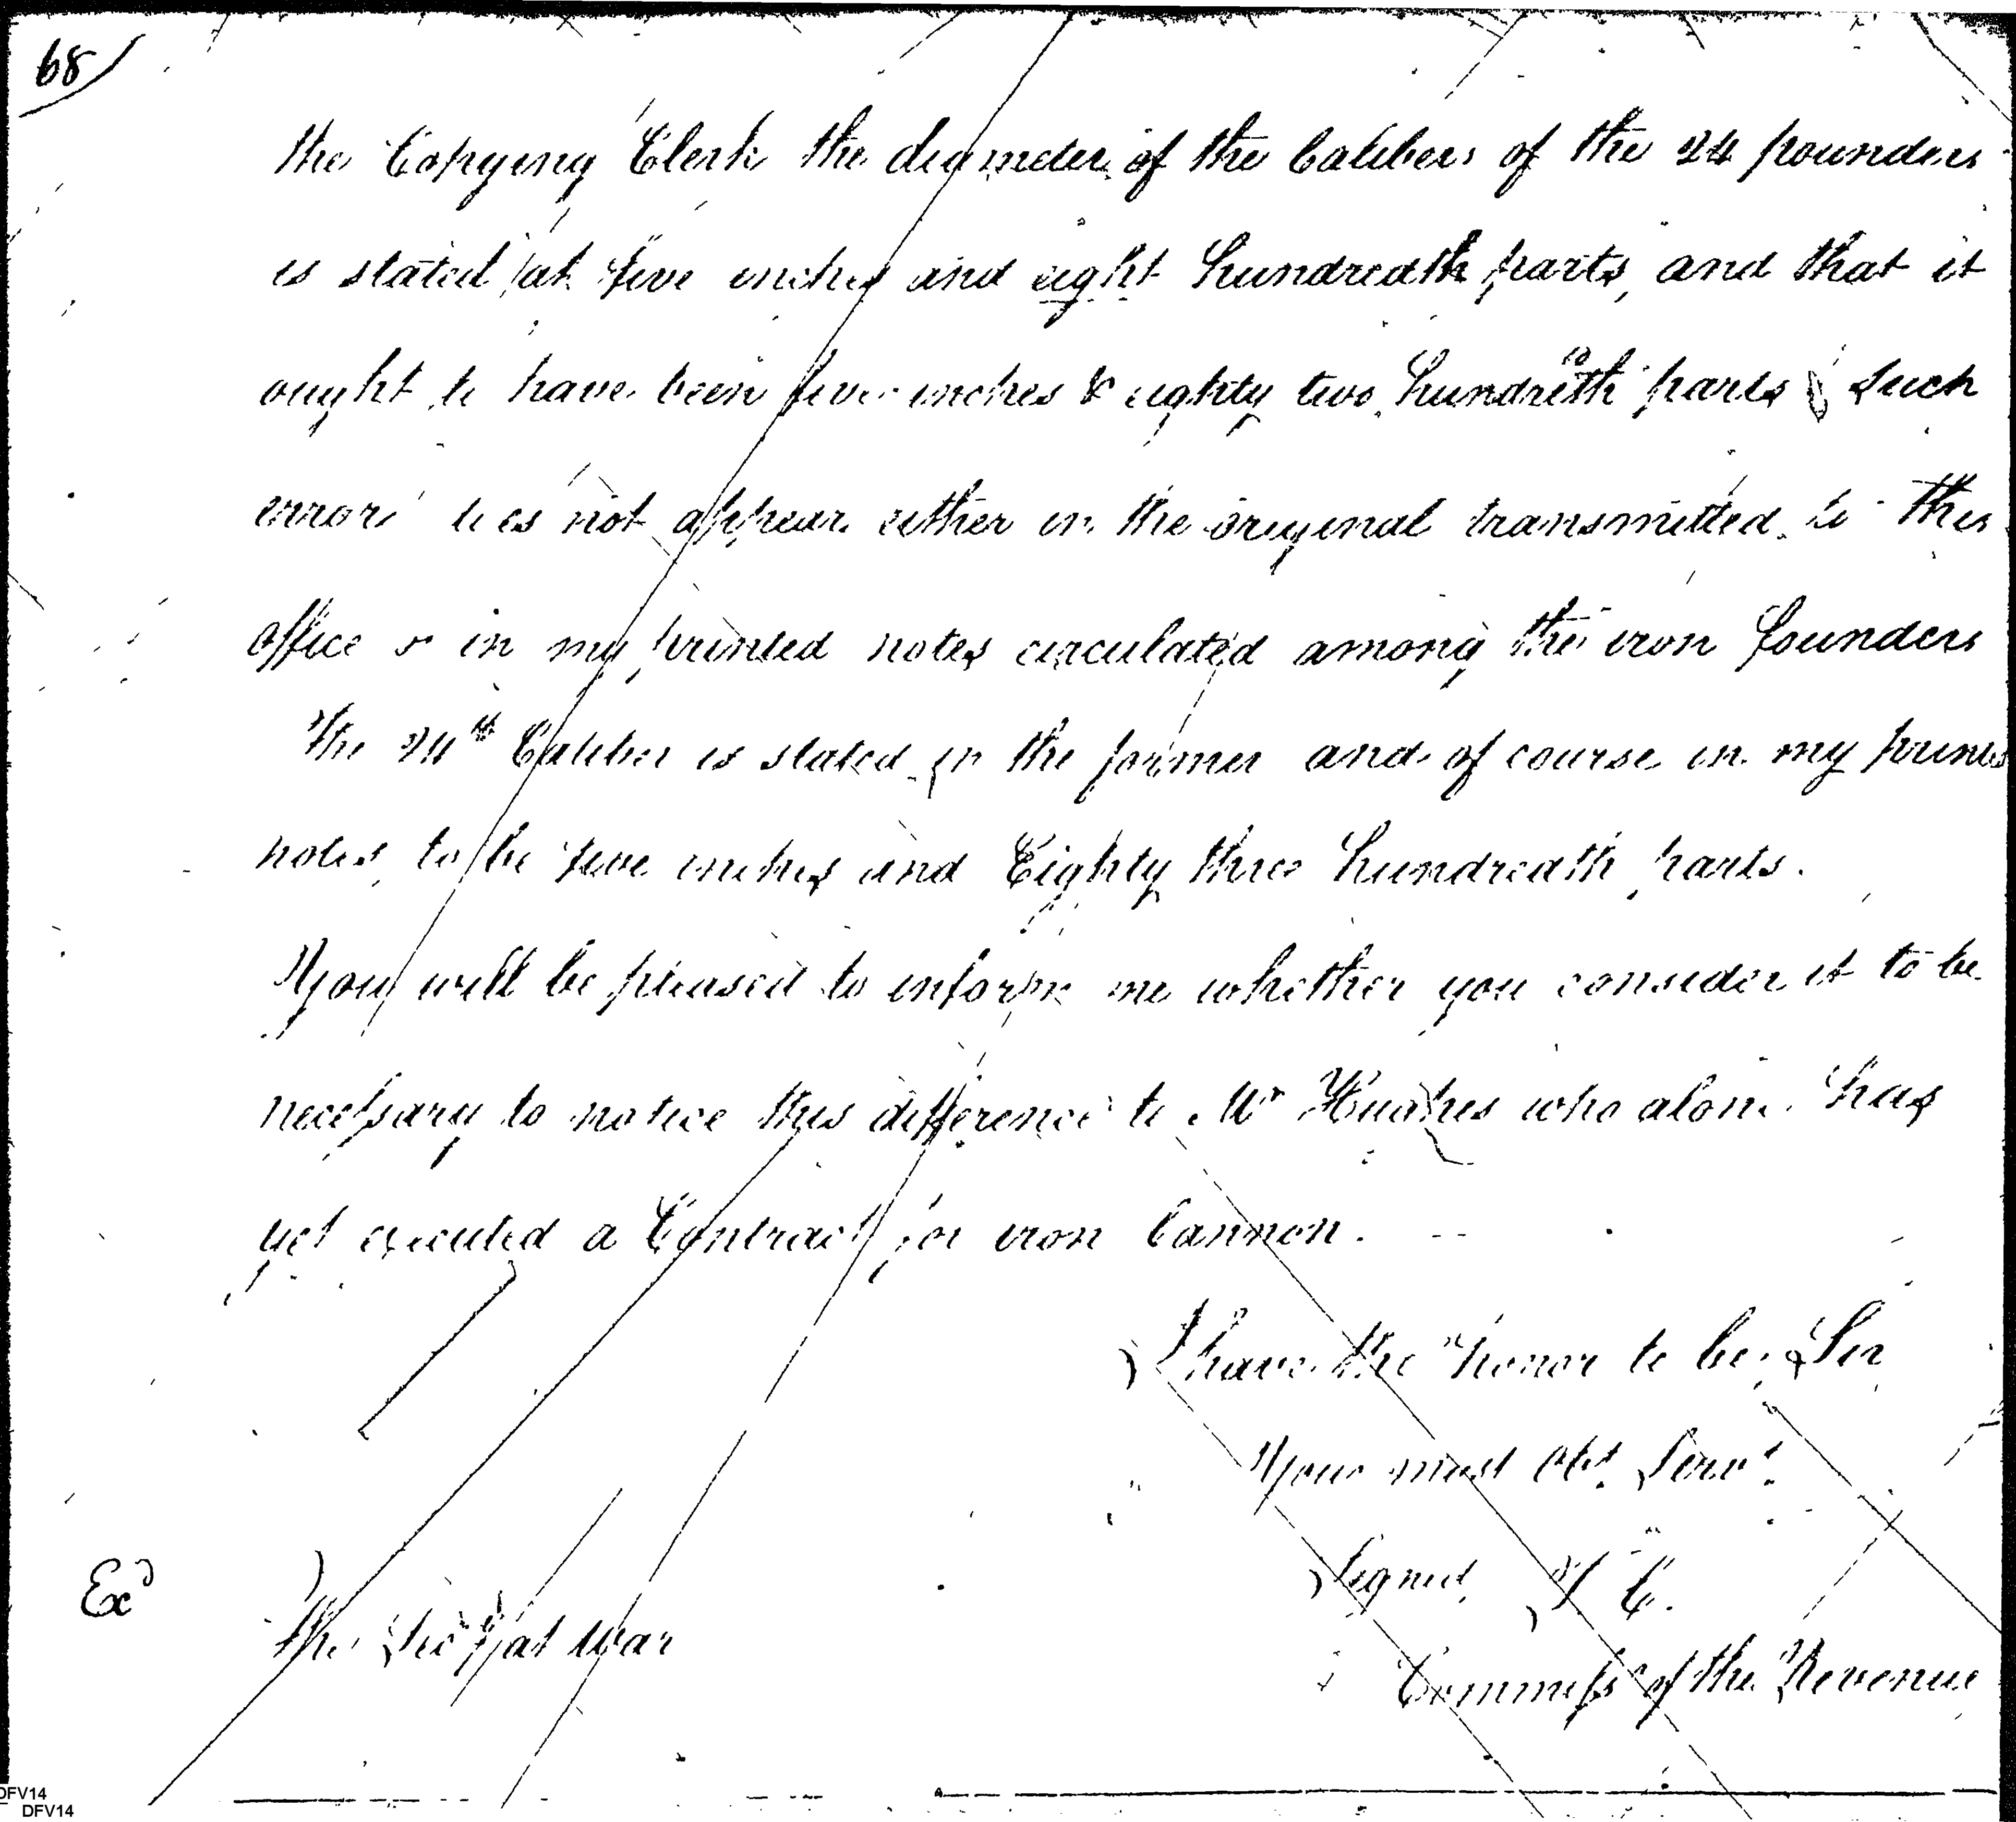 68
the Copying Clerk the diameter of the Calibers of the 24 pounders
is stated at five inches and eight hundredth parts, and that it
ought to have been five inches & eighty two hundreth parts such
error does not appear either in the original transmitted to this
office or in my printed notes circulated among the iron founders
The 24th Caliber is stated in the former and of course in my printed
notes, to be five inches and Eighty three hundredth parts.
You will be pleased to inform me whether you consider it to be
necessary to notice this difference to Mr Hughes who alone has
yet executed a Contract for iron Cannon.
I have the honor to be, Sir
Your most Obt. Servt.
Signed, T C.
Exd
The Secy at War
Commissr of the Revenue
DFV14
DFV14